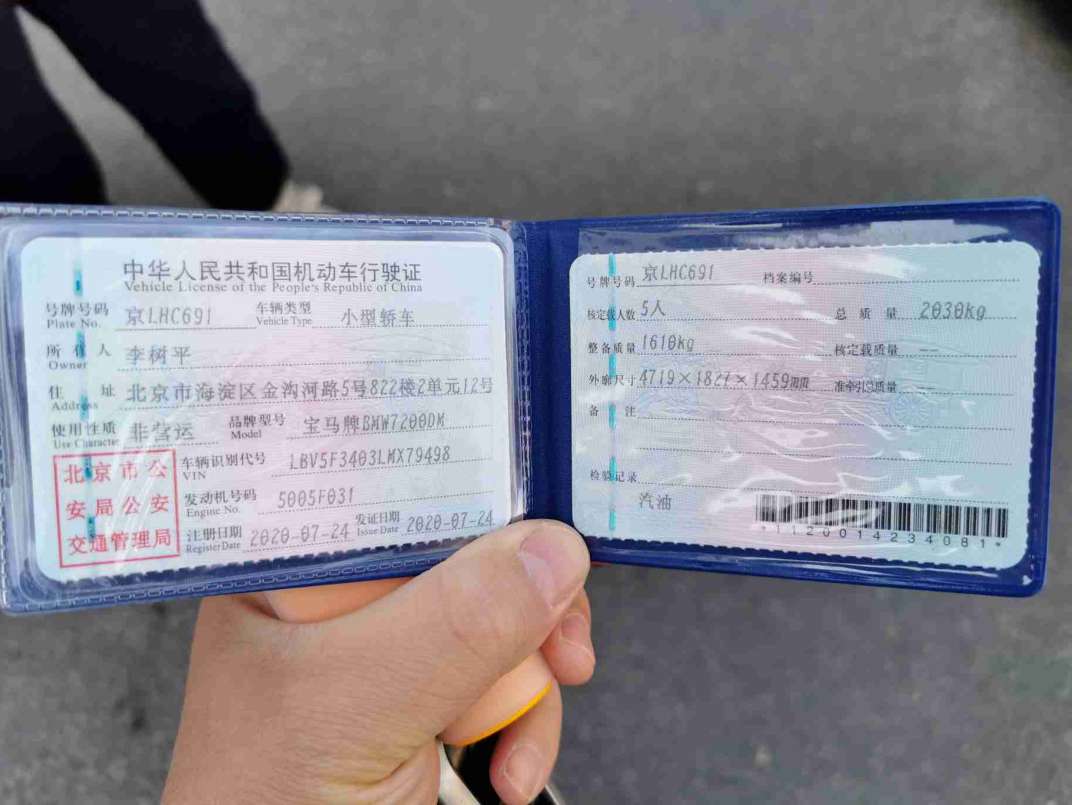 中华人民共和国机动车行驶证
Vehicle License of the People's Republic of China
号牌号码 京LHC691 车辆类型 小型轿车
Plate No. Vehicle Type
所有人 李树平
Owner
住址 北京市海淀区金沟河路5号822楼2单元12号
Address
使用性质 非营运 品牌型号 宝马牌BMW7200DM
Use Character Model
北京市公
安局公安
交通管理局
车辆识别代号 LBV5F3403LMX79498
VIN
发动机号码 5005F031
Engine No.
注册日期 2020-07-24 发证日期 2020-07-24
Register Date Issue Date
号牌号码 京LHC691 档案编号
核定载人数 5人 总质量 2030kg
整备质量 1610kg 核定载质量 --
外廓尺寸 4719×1827×1459mm 准牵引总质量 --
备注
检验记录
汽油
*1120014234081*